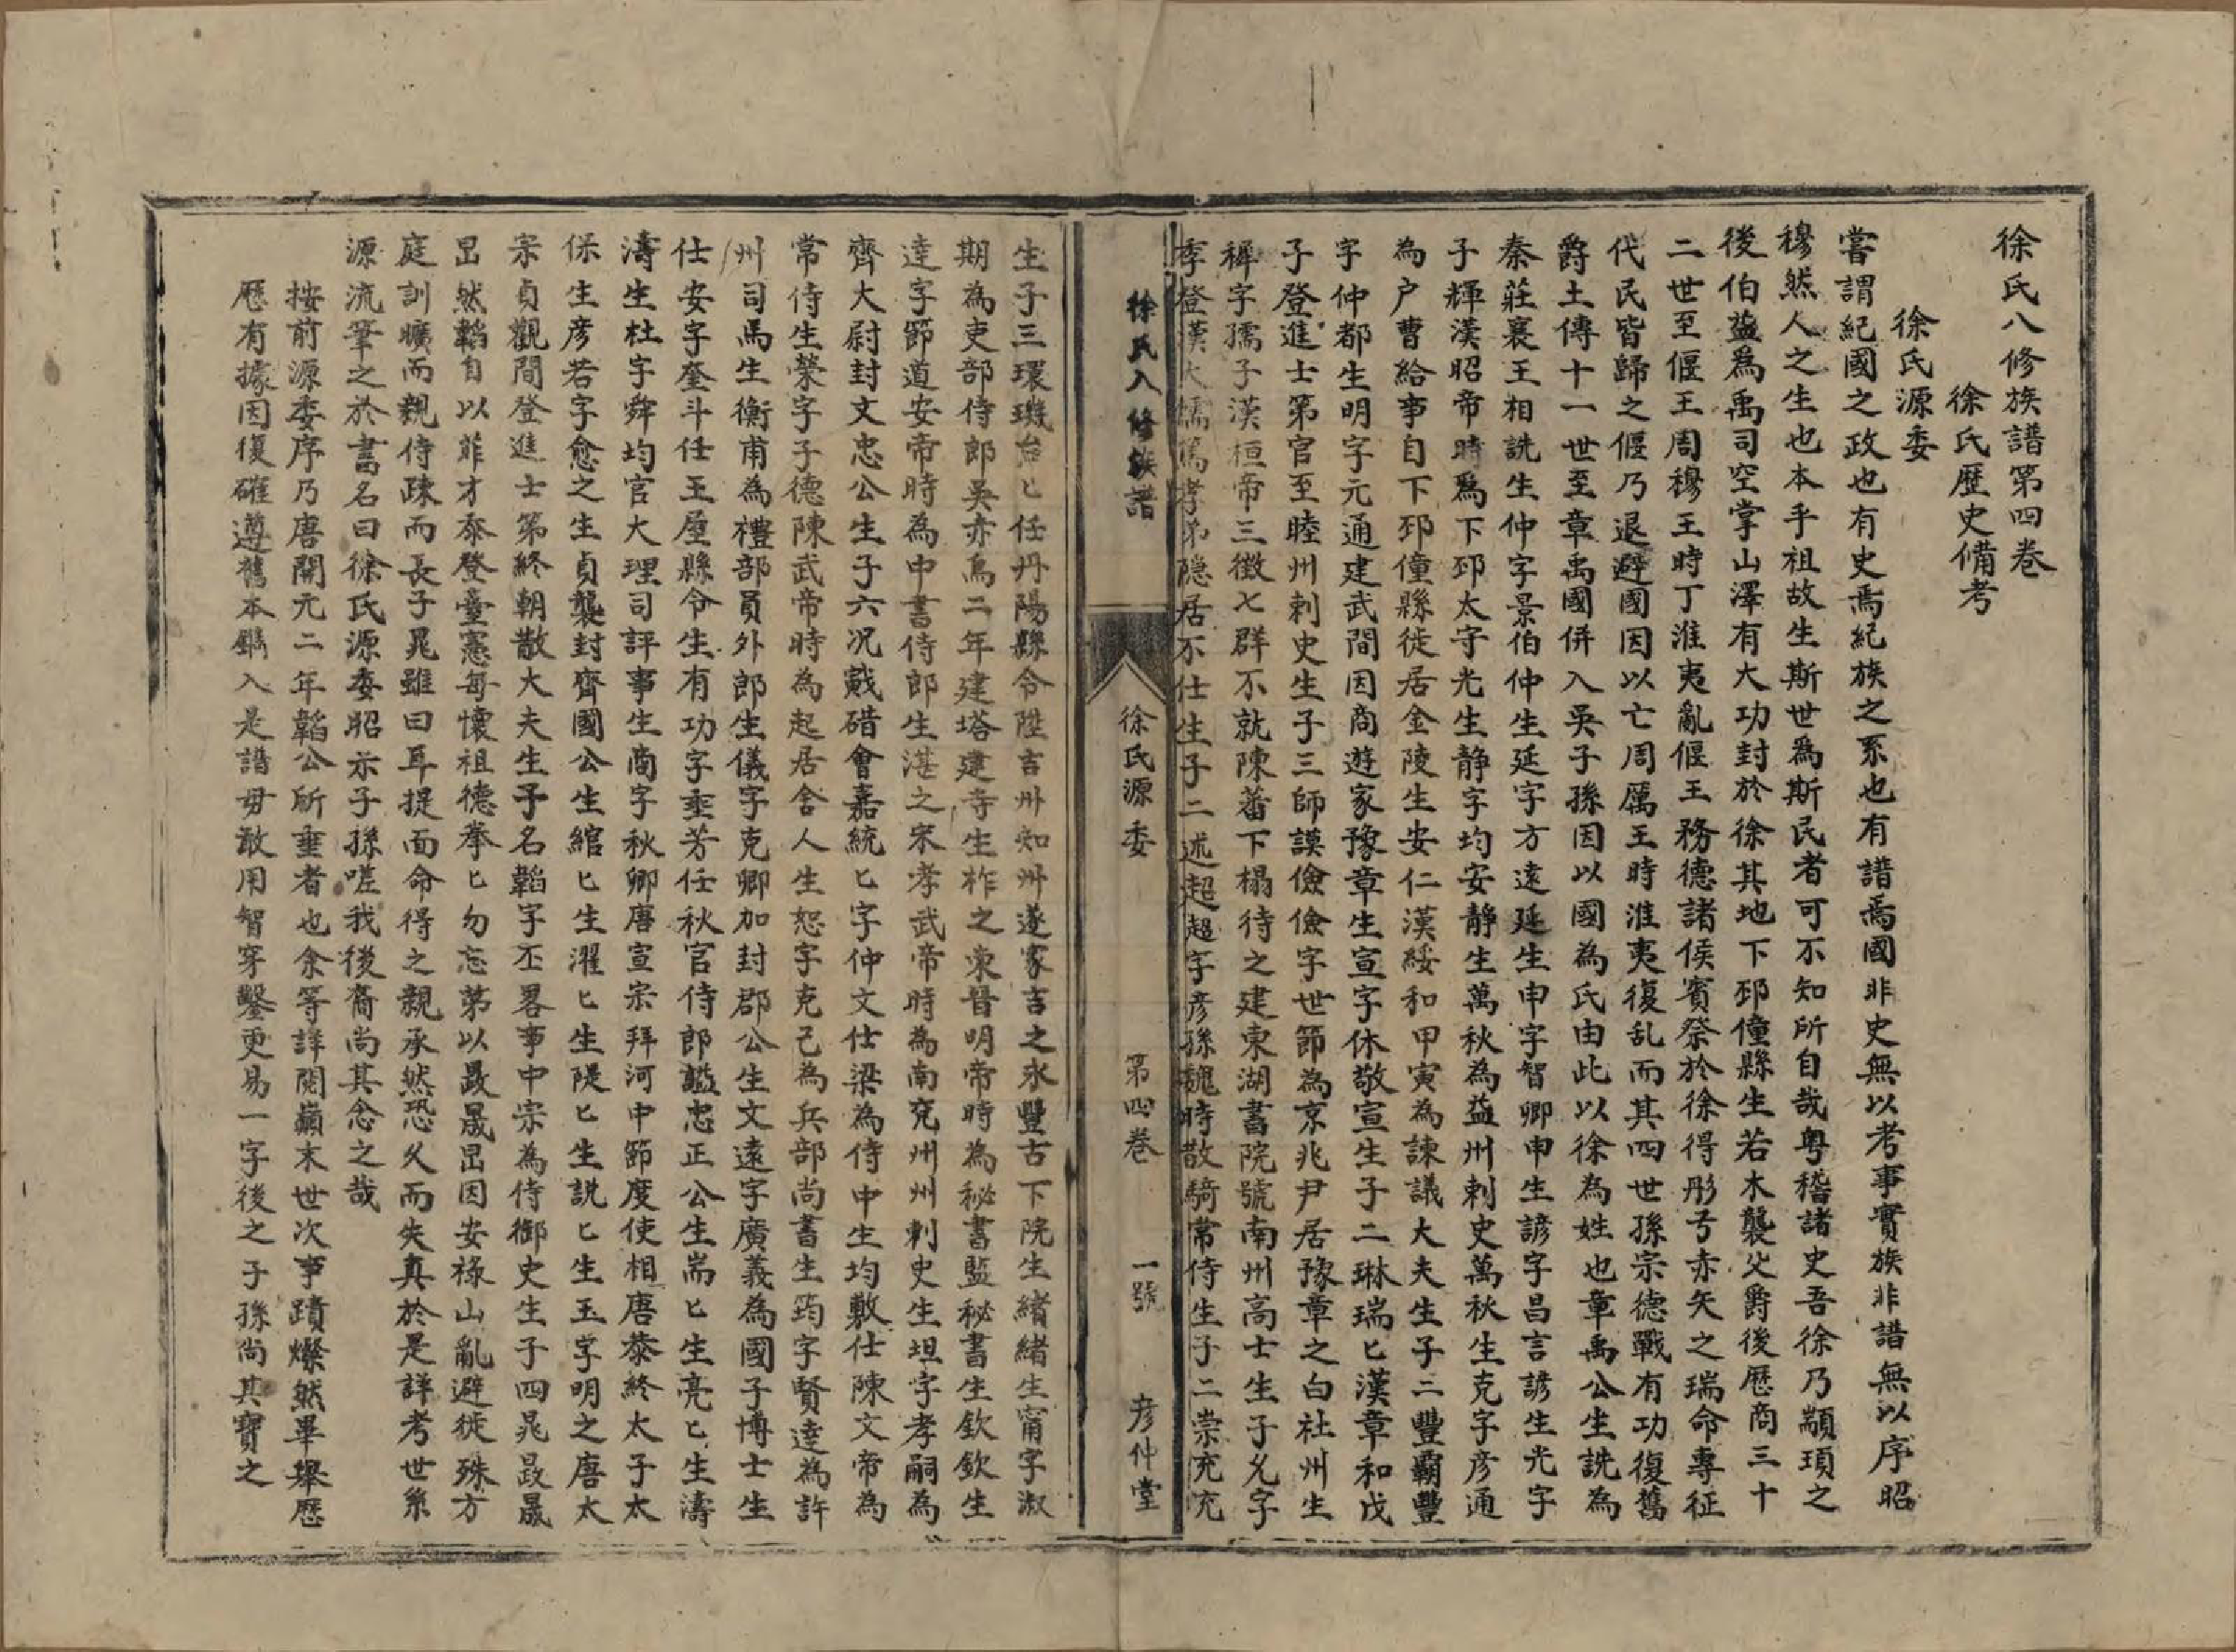 徐氏八修族譜第四卷
徐氏歷史備考
徐氏源委
嘗謂紀國之政也有史焉紀族之系也有譜焉國非史無以考事實族非譜無以序昭
穆然人之生也本乎祖故生斯世爲斯民者可不知所自哉粤稽諸史吾徐乃顓頊之
後伯益爲禹司空掌山澤有大功封於徐其地下邳僮縣生若木襲父爵後歷商三十
二世至偃王周穆王時丁淮夷亂偃王務德諸侯賓祭於徐得彤弓赤矢之瑞命專征
代民皆歸之偃乃退避國因以亡周厲王時淮夷復乱而其四世孫宗德戰有功復舊
爵土傳十一世至章禹國併入吳子孫因以國為氏由此以徐為姓也章禹公生詵為
秦莊襄王相詵生仲字景伯仲生延字方遠延生申字智卿申生諺字昌言諺生光字
子輝漢昭帝時爲下邳太守光生静字均安静生萬秋為益州刺史萬秋生克字彦通
為户曹給事自下邳僮縣徙居金陵生安仁漢綏和甲寅為諫議大夫生子二豐霸豐
字仲都生明字元通建武間因商遊家豫章生宣字休敬宣生子二琳瑞匕漢章和戊
子登進士第官至睦州刺史生子三師謨儉儉字世節為京兆尹居豫章之白社州生
稺字孺子漢桓帝三徵七群不就陳蕃下榻待之建東湖書院號南州高士生子允字
季登漢大儒篤孝弟隐居不仕生子二述超超字彦孫魏時散騎常侍生子二崇充充
徐氏八修族譜
徐氏源委
第四卷
一號
彦仲堂
生子三環璣台匕任丹陽縣令陞吉州知州遂家吉之永豐古下院生緒緒生甯字淑
期為吏部侍郎吳赤烏二年建塔建寺生柞之東晉明帝時為秘書監秘書生欽欽生
逹字節道安帝時為中書侍郎生湛之宋孝武帝時為南兖州州刺史生坦字孝嗣為
齊大尉封文忠公生子六况戭碏會嘉統匕字仲文仕梁為侍中生均敷仕陳文帝為
常侍生榮字子德陳武帝時為起居舍人生恕字克己為兵部尚書生筠字賢逹為許
州司馬生衡甫為禮部員外郎生儀字克卿加封郡公生文遠字廣義為國子博士生
仕安字奎斗任王屋縣令生有功字垂芳任秋官侍郎謚忠正公生耑匕生亮匕生濤
濤生杜字舜均官大理司評事生商字秋卿唐宣宗拜河中節度使相唐叅終太子太
保生彦若字愈之生貞襲封齊國公生綰匕生濯匕生隄匕生説匕生玉字明之唐太
宗貞觀間登進士第終朝散大夫生子名韜字丕畧事中宗為侍御史生子四晁敃晟
岊然韜自以菲才忝登臺憲每懷祖德拳匕勿忘第以敃晟岊因安祿山亂避徙殊方
庭訓曠而親侍疎而長子晁雖曰耳提面命得之親承然恐久而失真於是詳考世系
源流筆之於書名曰徐氏源委昭示子孫嗟我後裔尚其念之哉
按前源委序乃唐開元二年韜公所垂者也余等詳閱巔末世次事蹟燦然畢舉歷
歷有據因復確遵舊本鐫入是譜毋敢用智穿鑿更易一字後之子孫尚其寶之